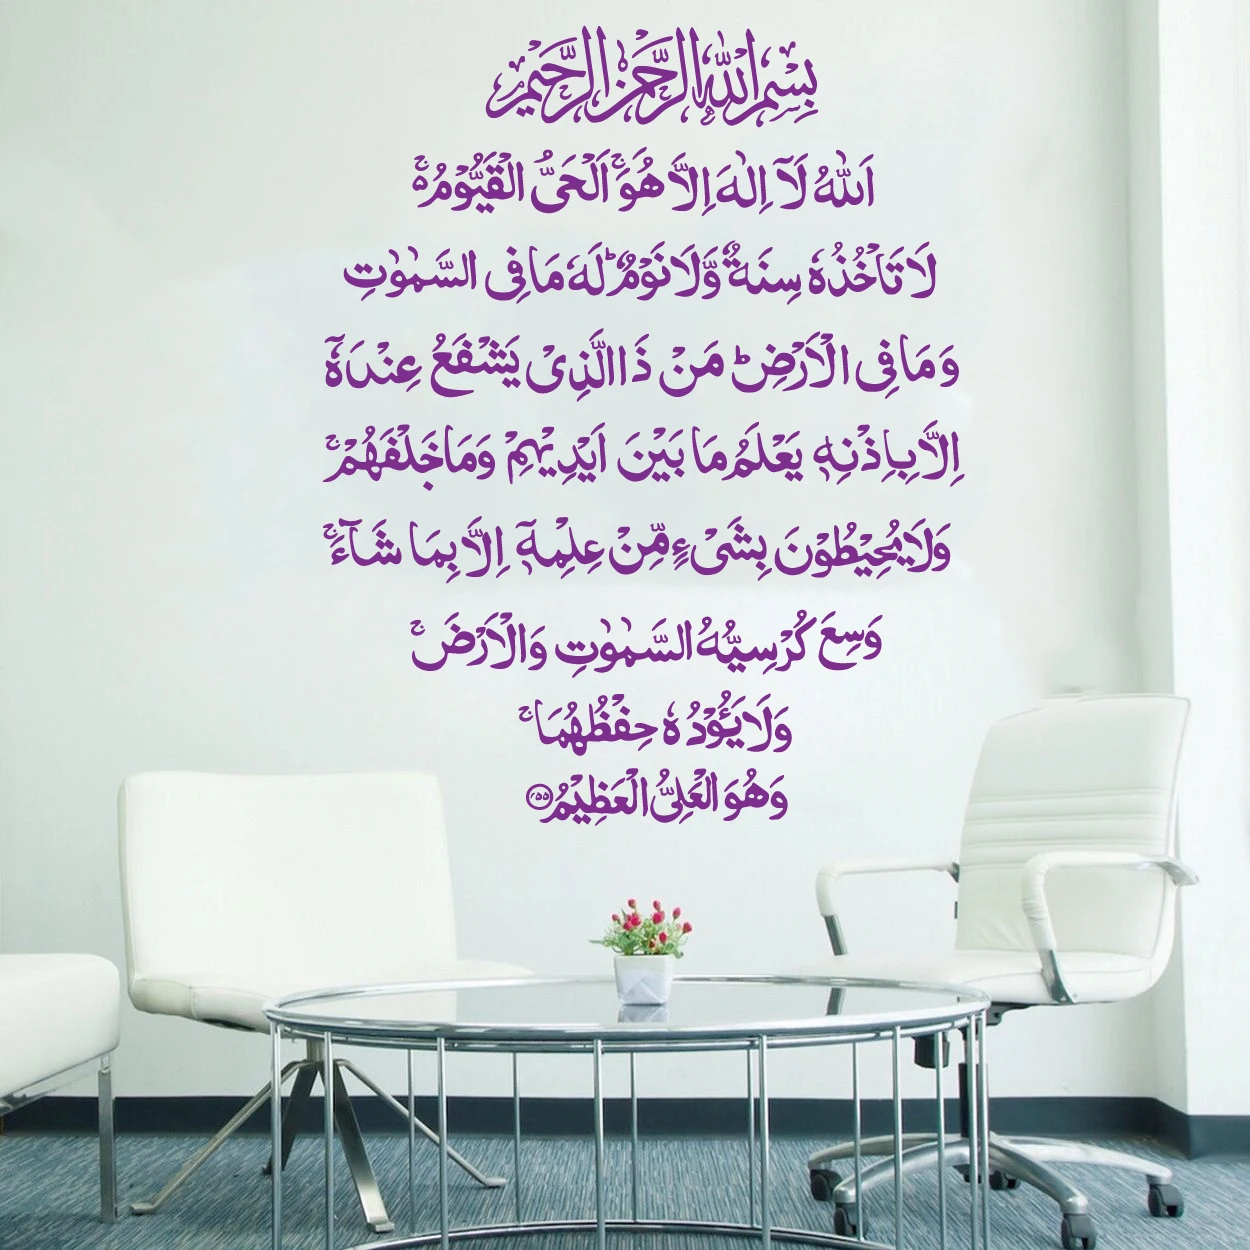 بِسْمِ اللّٰهِ الرَّحْمٰنِ الرَّحِيْمِ
اَللّٰهُ لَاۤ اِلٰهَ اِلَّا هُوَۚ اَلْحَیُّ الْقَيُّوْمُ ۚ۬
لَا تَاْخُذُهٗ سِنَةٌ وَّلَا نَوْمٌ ؕ لَهٗ مَا فِی السَّمٰوٰتِ
وَمَا فِی الْاَرْضِ ؕ مَنْ ذَا الَّذِیْ يَشْفَعُ عِنْدَهٗۤ
اِلَّا بِاِذْنِهٖ يَعْلَمُ مَا بَيْنَ اَيْدِيْهِمْ وَمَا خَلْفَهُمْ ۚ
وَلَا يُحِيْطُوْنَ بِشَیْءٍ مِّنْ عِلْمِهٖۤ اِلَّا بِمَا شَآءَ ۚ
وَسِعَ كُرْسِيُّهُ السَّمٰوٰتِ وَالْاَرْضَ ۚ
وَلَا يَـُٔوْدُهٗ حِفْظُهُمَا ۚ
وَهُوَ الْعَلِیُّ الْعَظِيْمُ ۝۲۵۵